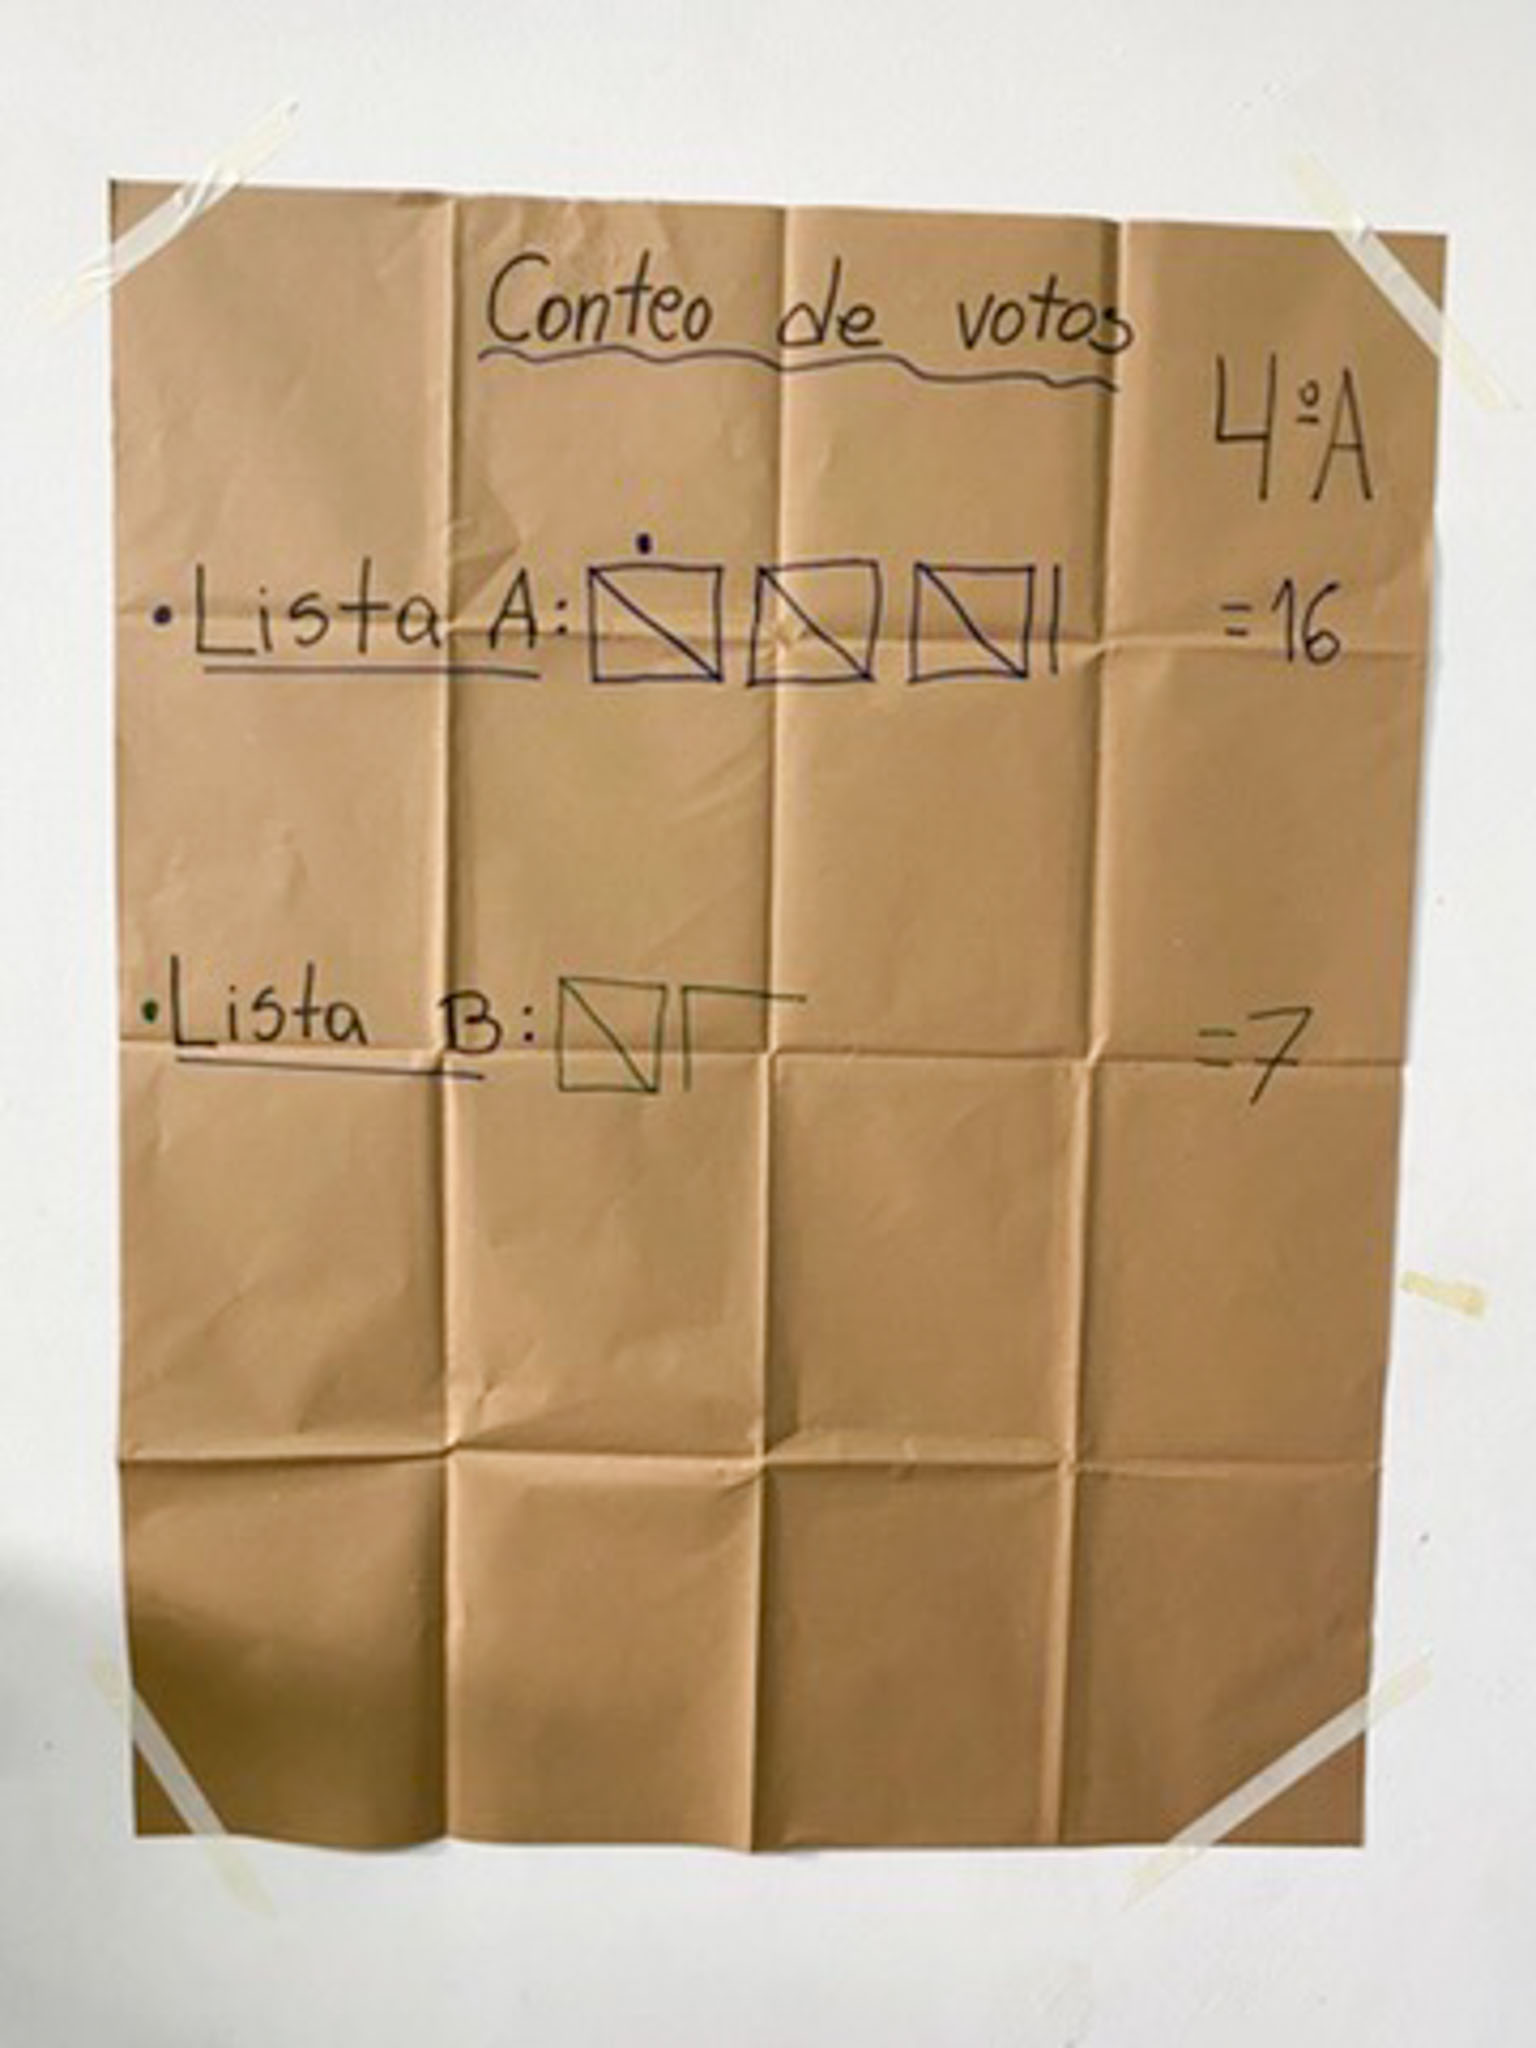 Conteo de votos
4ºA
• Lista A: = 16
• Lista B: = 7